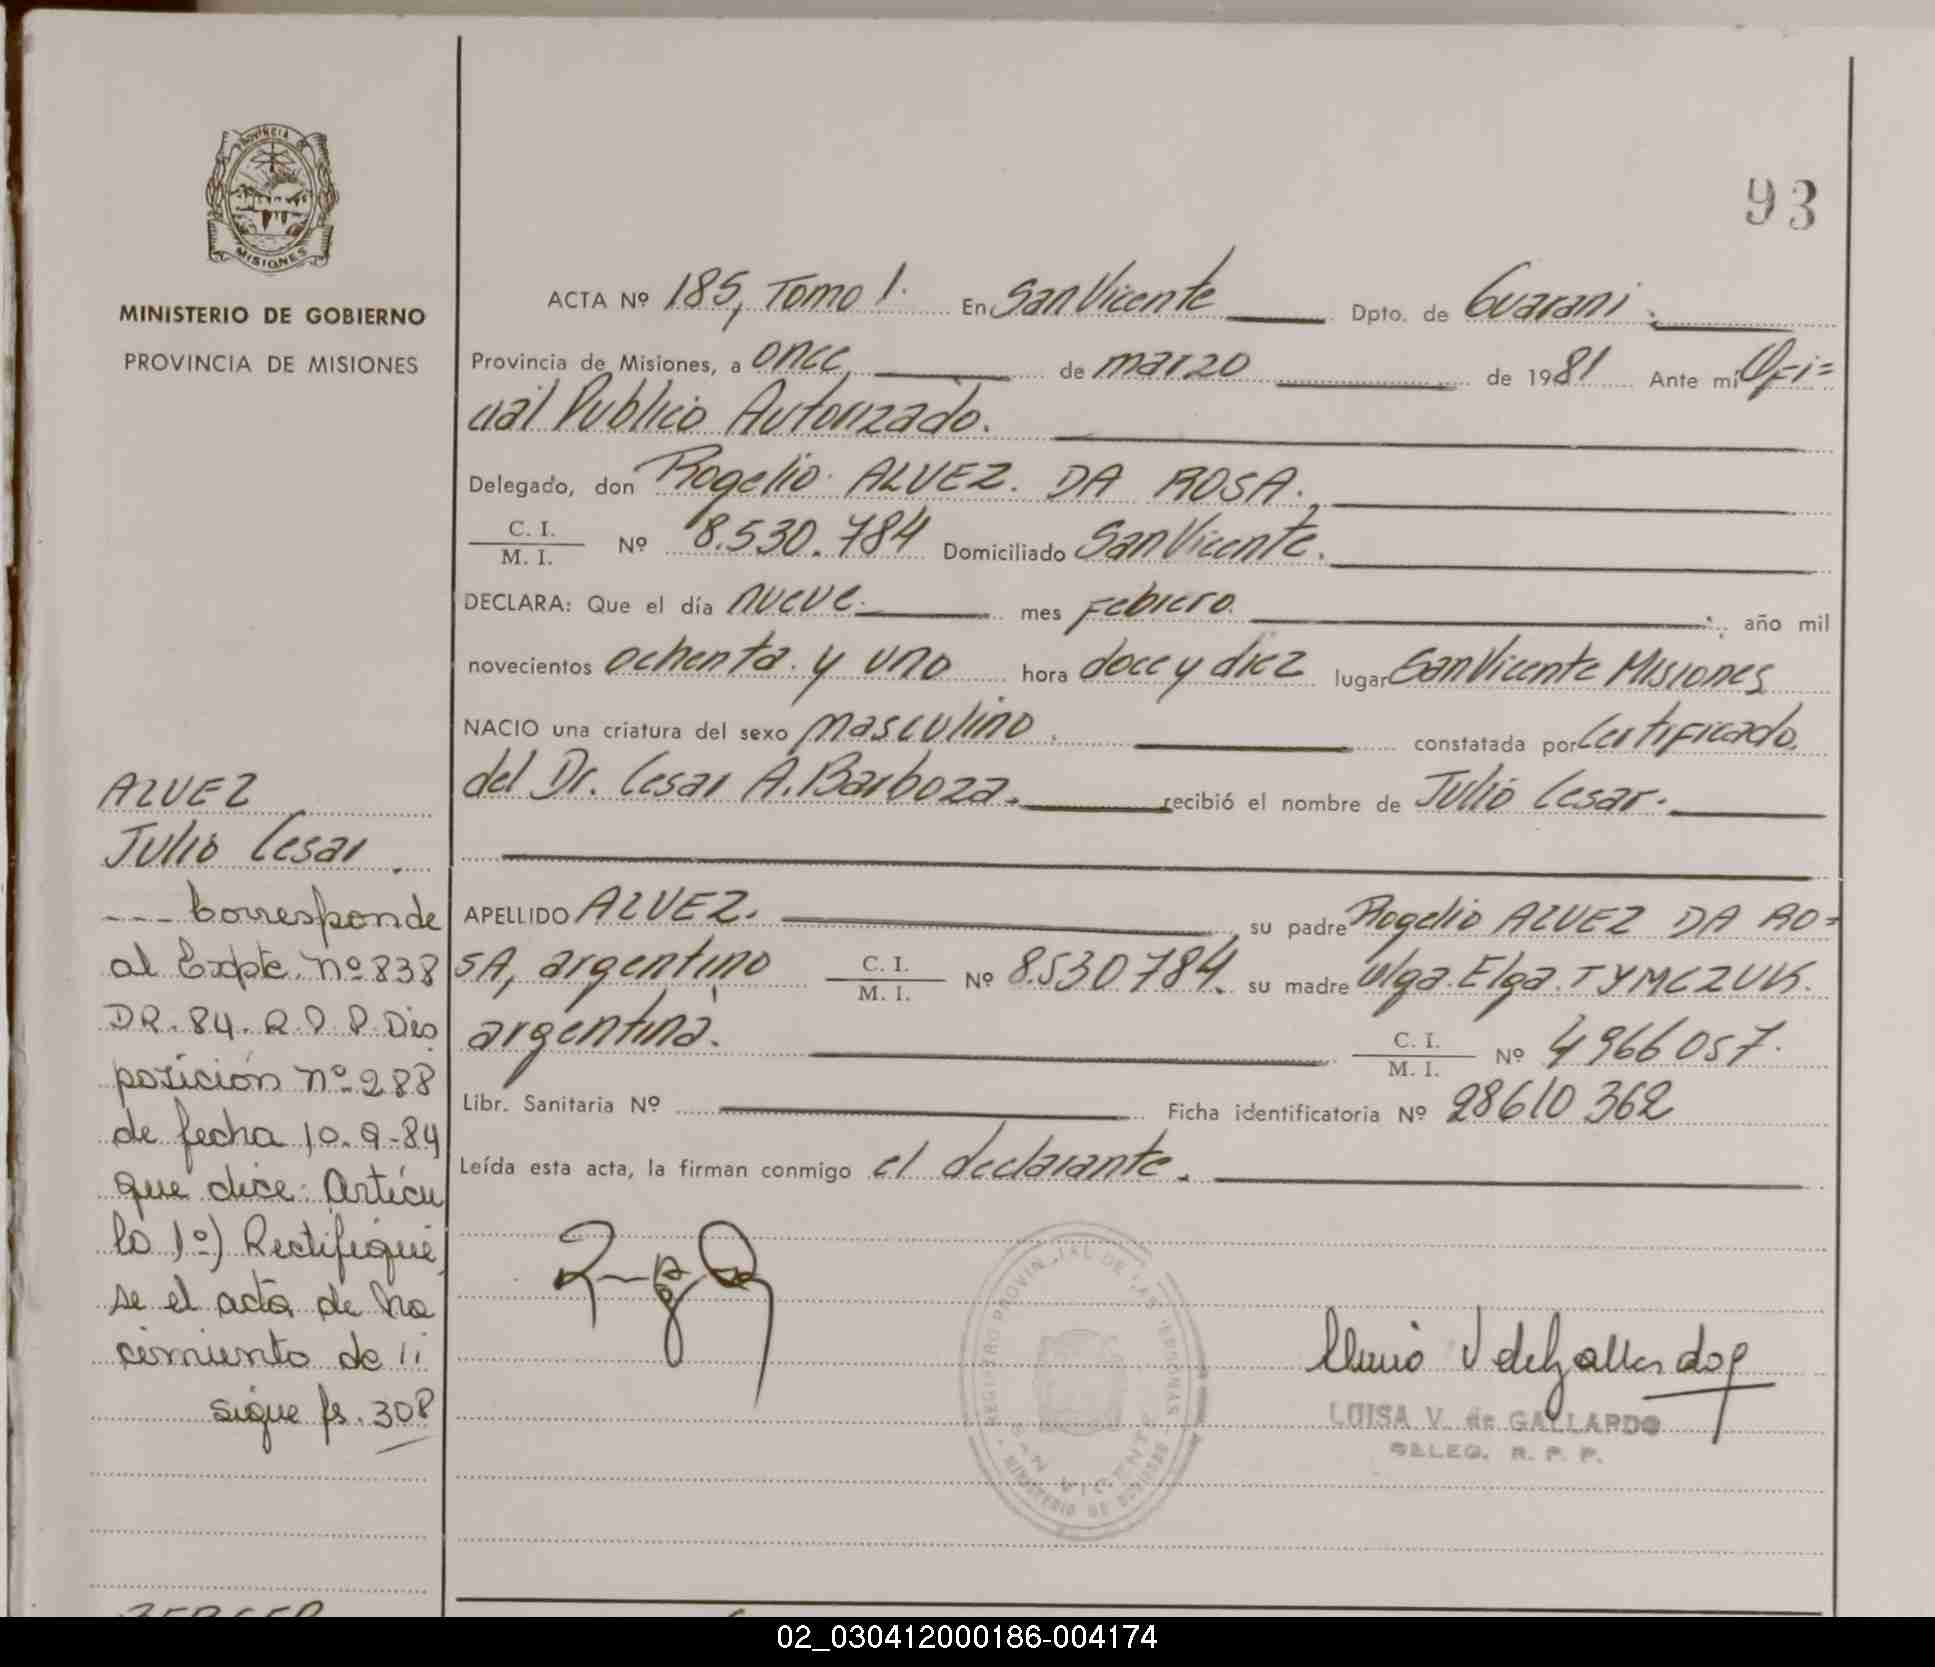 PROVINCIA DE
MISIONES
MINISTERIO DE GOBIERNO
PROVINCIA DE MISIONES
ALVEZ
Julio Cesar
--- Corresponde
al Expte. nº 838
DR. 84. R.P.P. Dis
posición nº 288
de fecha 10.9-84
que dice: Artícu
lo 1º) Rectifíque
se el acta de na
cimiento de
sigue fs. 308
93
ACTA Nº 185, Tomo 1. En San Vicente Dpto. de Guarani.
Provincia de Misiones, a once de marzo de 1981 Ante mi Ofi=
cial Publico Autorizado.
Delegado, don Rogelio ALVEZ. DA ROSA.
C. I.
M. I. Nº 8.530.784 Domiciliado San Vicente.
DECLARA: Que el día nueve. mes Febrero. año mil
novecientos ochenta y uno hora doce y diez lugar San Vicente Misiones
NACIO una criatura del sexo masculino. constatada por Certificado
del Dr. Cesar A. Barboza. recibió el nombre de Julio Cesar.
APELLIDO ALVEZ. su padre Rogelio ALVEZ DA RO=
SA, argentino C. I. M. I. Nº 8.530784. su madre Olga Elga TYMCZUK.
argentina. C. I. M. I. Nº 4966057.
Libr. Sanitaria Nº Ficha identificatoria Nº 28610362
Leída esta acta, la firman conmigo el declarante.
REGISTRO PROVINCIAL DE LAS PERSONAS
SAN VICENTE
MINISTERIO DE GOBIERNO
LUISA V. de GALLARDO
DELEG. R. P. P.
02_030412000186-004174